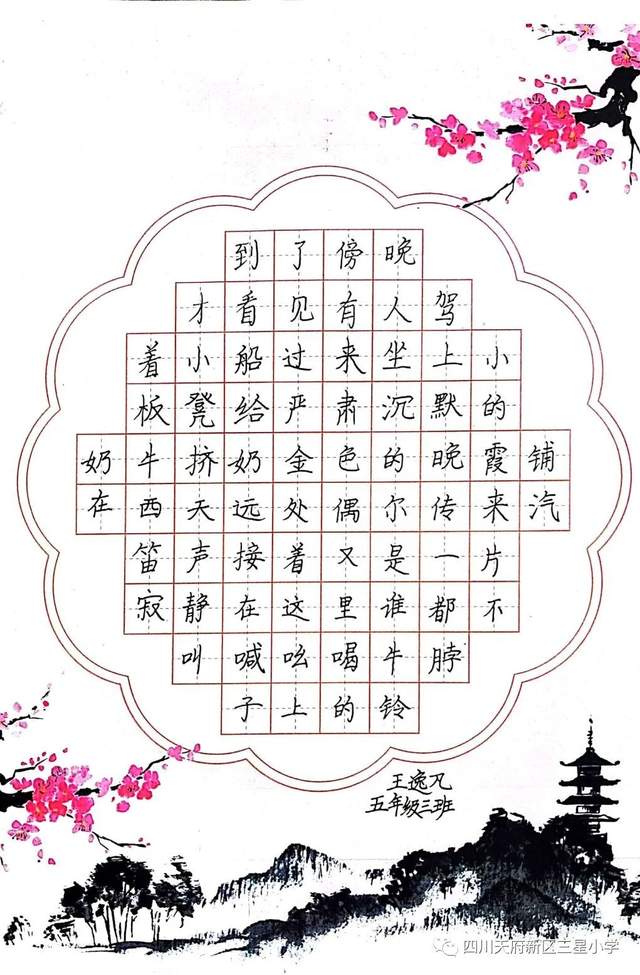 到了傍晚
才看见有人驾
着小船过来坐上小
板凳给严肃沉默的
奶牛挤奶金色的晚霞铺
在西天远处偶尔传来汽
笛声接着又是一片
寂静在这里谁都不
叫喊吆喝牛脖
子上的铃
王逸凡
五年级三班
四川天府新区三星小学